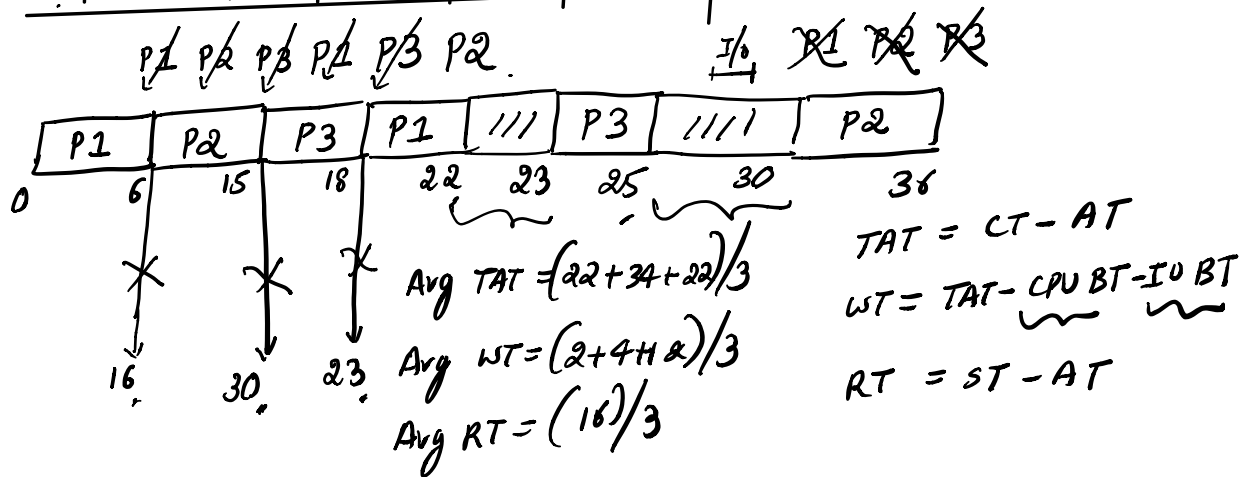 P1 P2 P3 P1 P3 P2. I/o P1 P2 P3
P1 P2 P3 P1 //// P3 //// P2
0 6 15 18 22 23 25 30 36
16. 30. 23.
Avg TAT = (22+34+22)/3
Avg WT = (2+4+12)/3
Avg RT = (16)/3
TAT = CT - AT
WT = TAT - CPU BT - IO BT
RT = ST - AT